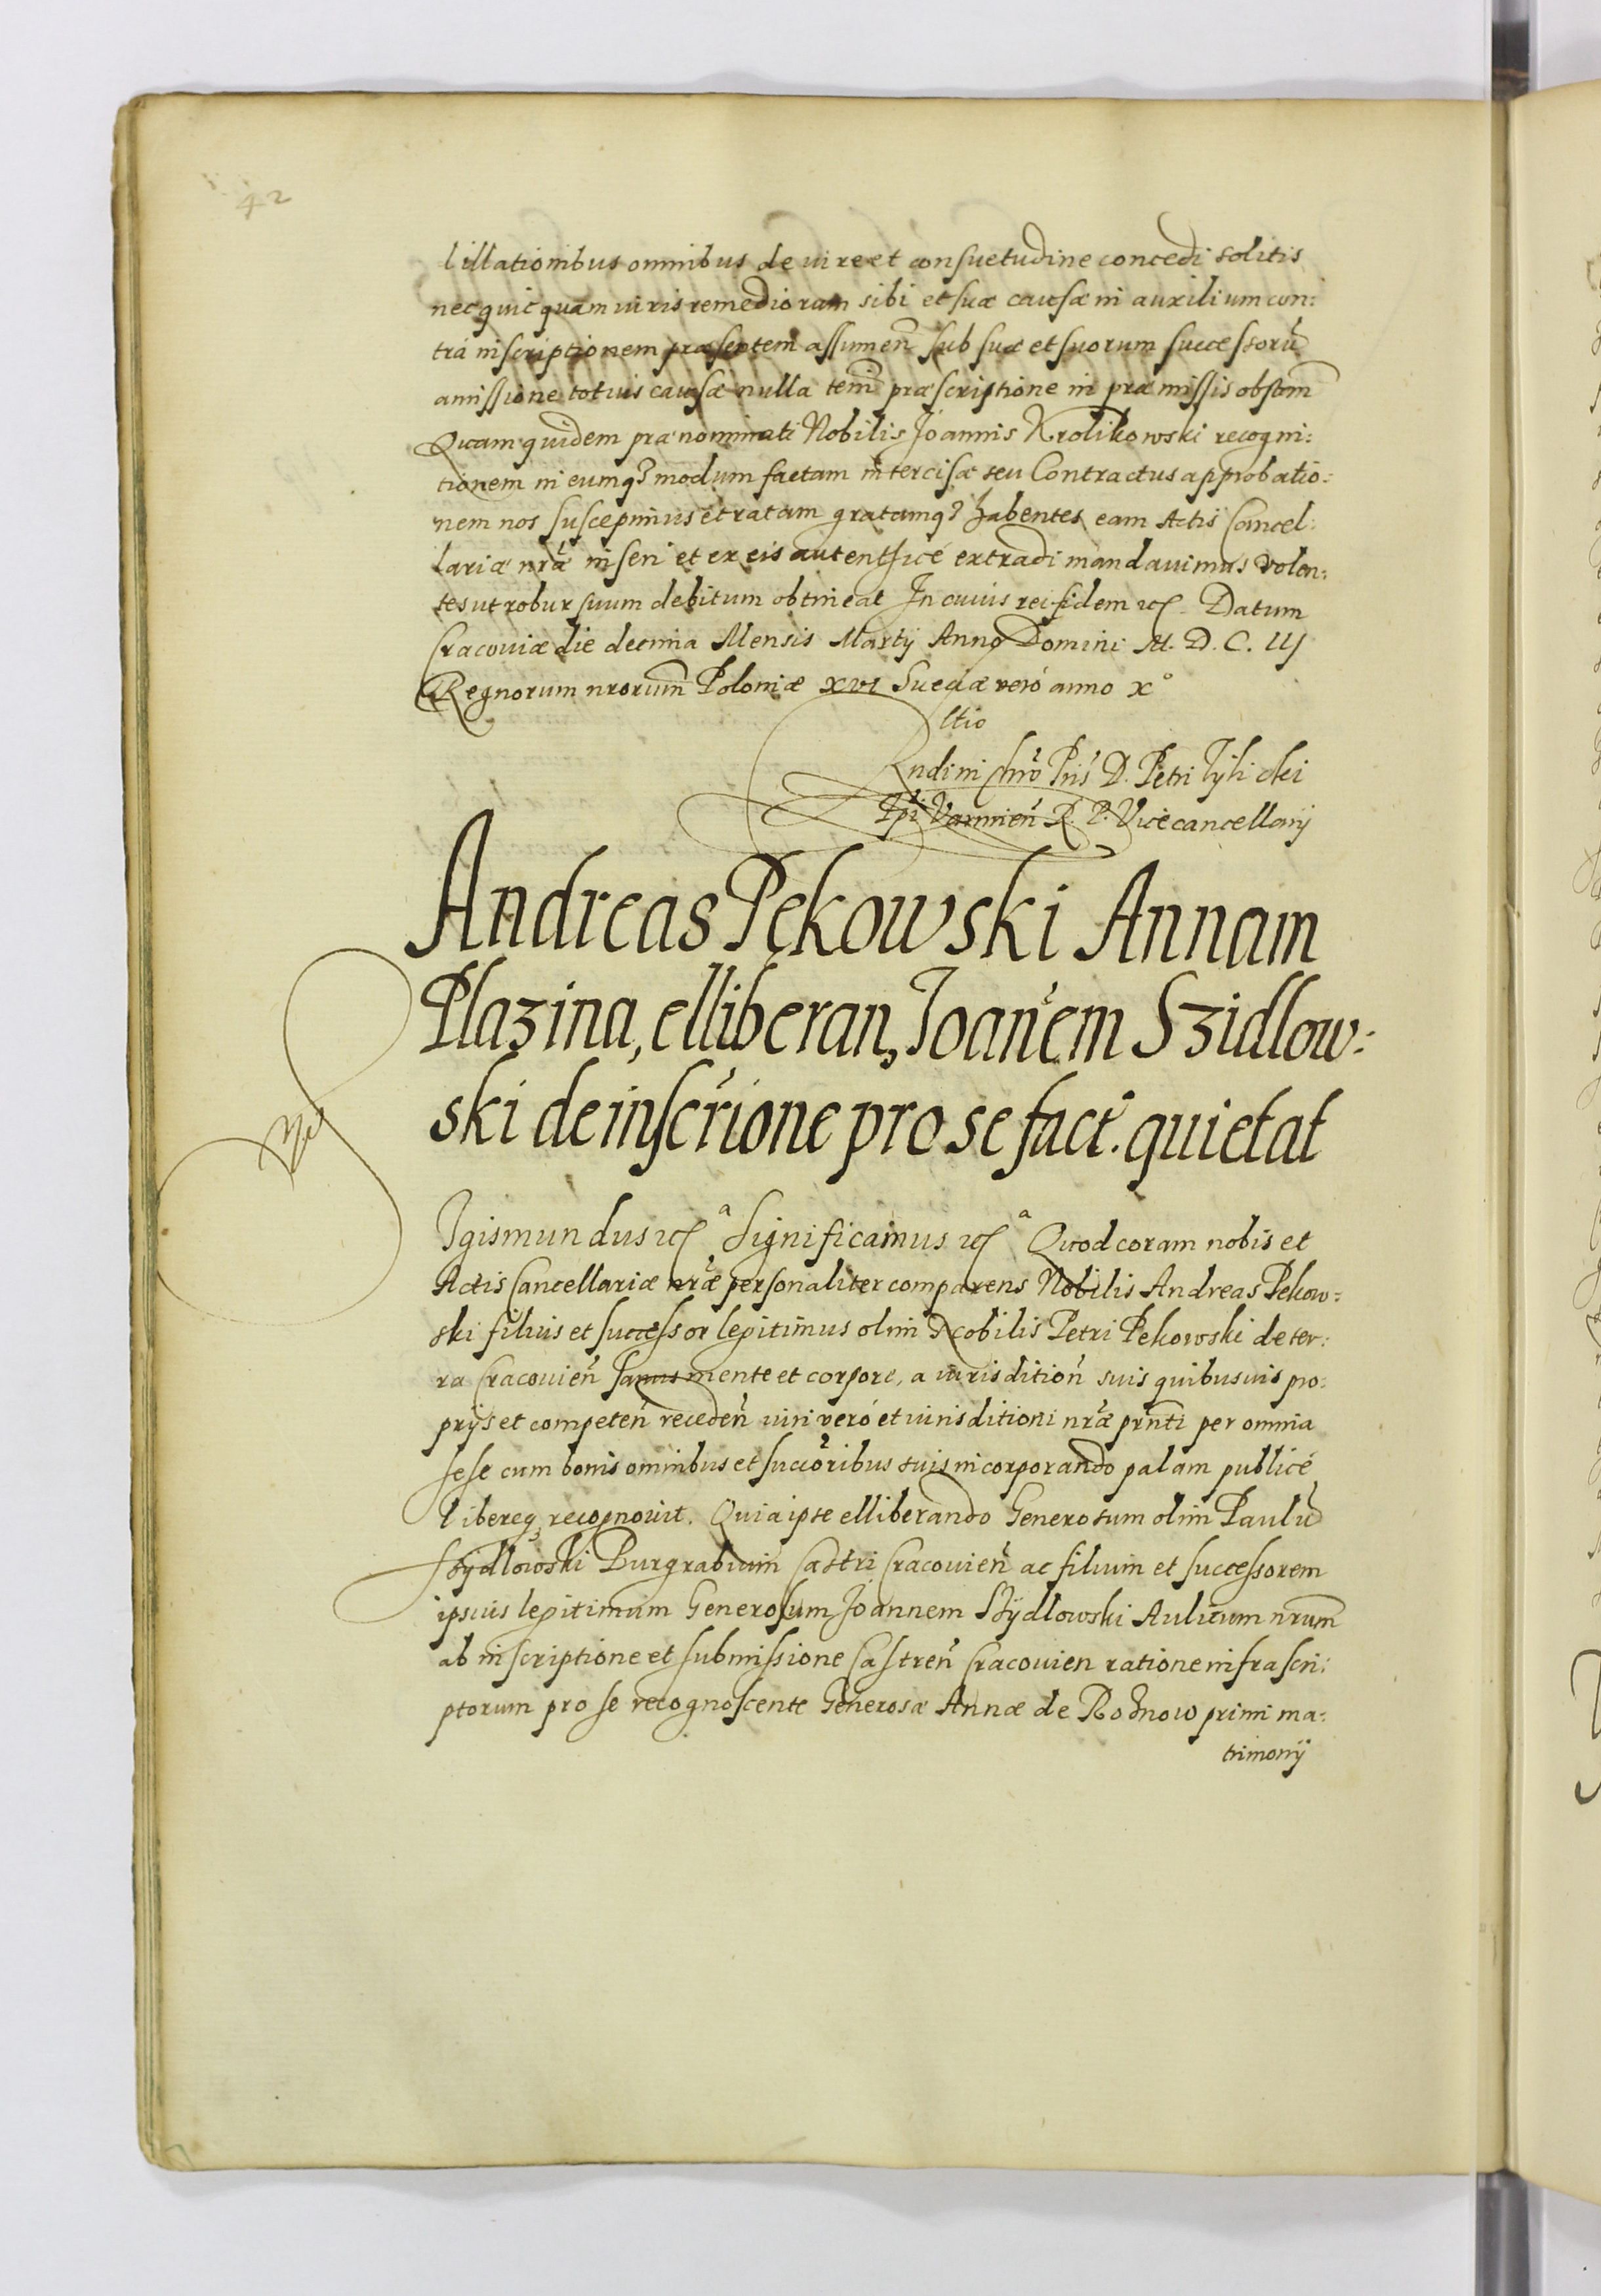 42
lillationibus omnibus de iure et consuetudine concedi solitis
nec quicquam iuris remediorum sibi et suæ causæ in auxilium con:
trá inscriptionem præsentem assumeñ sub suæ et suorum successorũ
amissione totius causæ nulla præscriptione in præmissis obstan
Quam quidem prænominati Nobilis Joannis Krolikowski recogni:
tionem in eumq3 modum factam intercisæ seu Contractus approbatio:
nem nos suscepimus et ratam gratamq3 habentes eam Actis Cancel:
lariæ nr̃æ inseri et ex eis autenticé extradi mandauimus volen:
tes ut robur suum debitum obtineat In cuius rei fidem etc. Datum
Cracouiæ die decima Mensis Martij Anno Domini M. D. C. IIJ
Regnorum nrorum Poloniæ XVI Sueciæ veró anno X°
Rltio
Rndi in Chrõ Pris D. Petri Tylicki
Epi Varmieñ R. P. Vicecancellarij
Andreas Pękowski Annam
Plazina, elliberan, Joañem Szidlow:
ski de inscrione pro se fact. quietat
Igismundus etc a Significamus etc a Quod coram nobis et
Actis Cancellariæ nr̃æ personaliter comparens Nobilis Andreas Pekow:
ski filius et successor legitimus olim Nobilis Petri Pekowski de ter:
ra Cracouieñ sanus mente et corpore, a iurisditioñ suis quibusuis pro:
prijs et competeñ recedeñ iuri veró et iurisditioni nr̃æ prñti per omnia
sese cum bonis omnibus et succõribus suis incorporando palam publicé
libereq3 recognouit. Quia ipse elliberando Generosum olim Paulũ
Szydlowski Burgrabium Castri Cracouieñ ac filium et successorem
ipsius legitimum Generosum Joannem Szydlowski Aulicum nrum
ab inscriptione et submissione Castreñ Cracouien ratione infrascri:
ptorum pro se recognoscente Generosæ Annæ de Roznow primi ma:
trimonij